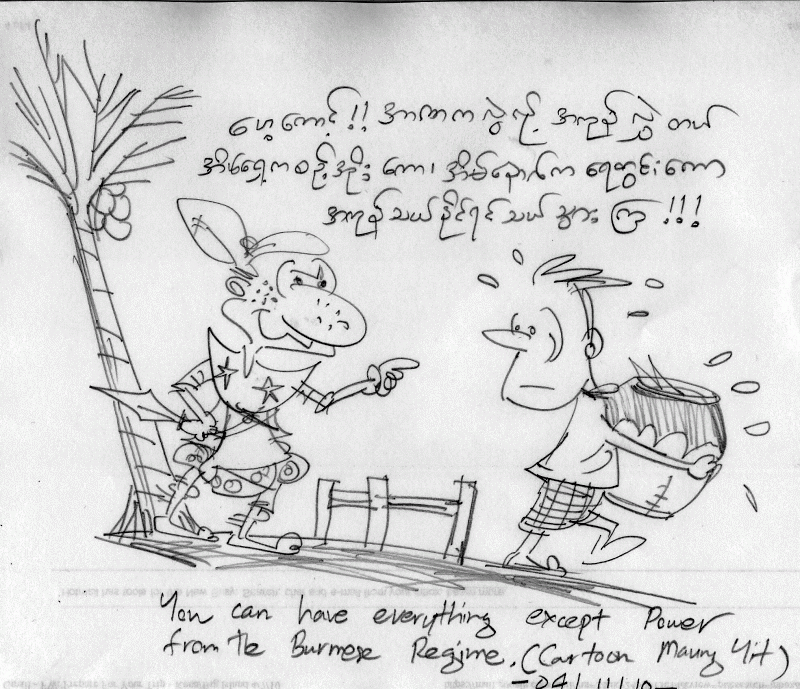 ဟေ့ကောင့် !! အာဏာက လွဲလို့ အကုန် လွှဲ တယ်
အိမ်ရှေ့က စဉ့်အိုး ကော၊ အိမ်နောက်က ရေတွင်းကော
အကုန်သယ် နိုင်ရင် သယ် သွား ကြ !!!
You can have everything except Power
from the Burmese Regime. (Cartoon Maung Yit)